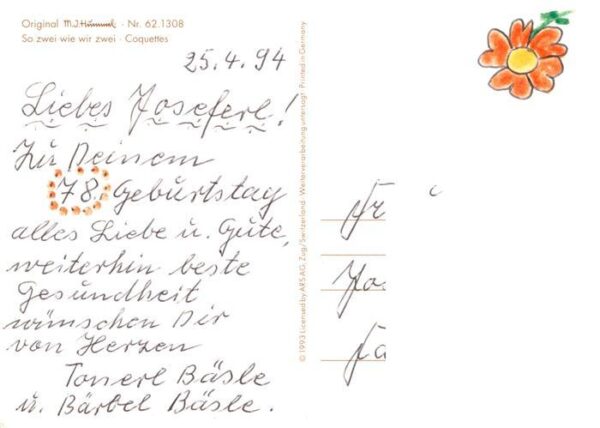 Original M.J.Hummel · Nr. 62.1308
So zwei wie wir zwei · Coquettes
25.4.94
Liebes Joseferl!
Zu Deinem
78. Geburtstag
alles Liebe u. Gute,
weiterhin beste
Gesundheit
wünschen Dir
von Herzen
Tonerl Bäsle
u. Bärbel Bäsle.
© 1993 Licensed by ARS AG, Zug/Switzerland · Weiterverarbeitung untersagt · Printed in Germany
Fr
Jo